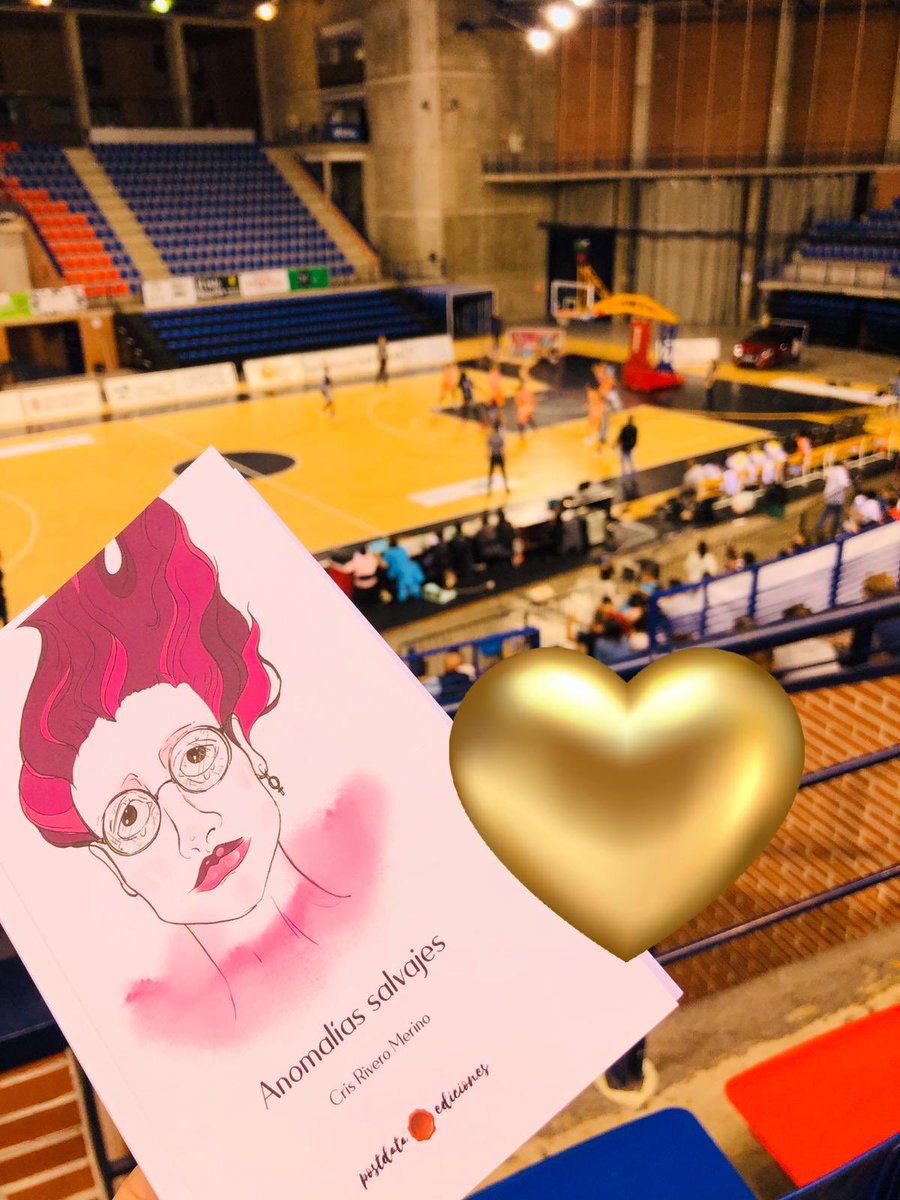 Anomalías salvajes
Cris Rivero Merino
postdata ediciones